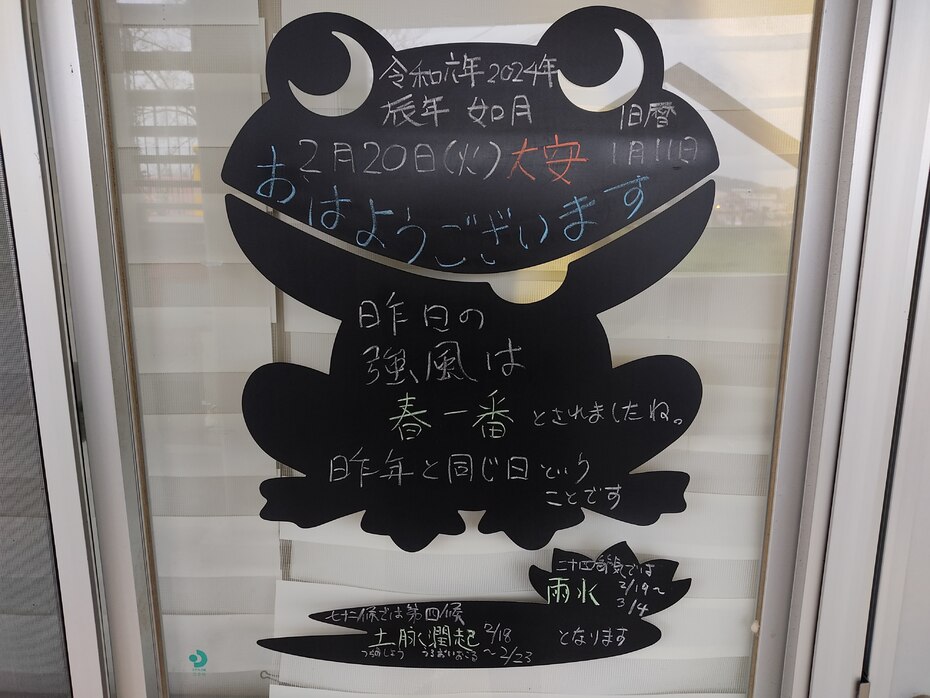 令和六年2024年
辰年 如月 旧暦
2月20日(火)大安 1月11日
おはようございます
昨日の
強風は
春一番とされましたね。
昨年と同じ日という
ことです
二十四節気では
雨水 2/19～
3/4
となります
七十二候では第四候
土脉潤起 2/18
つちのしょう うるおいおこる ～2/23